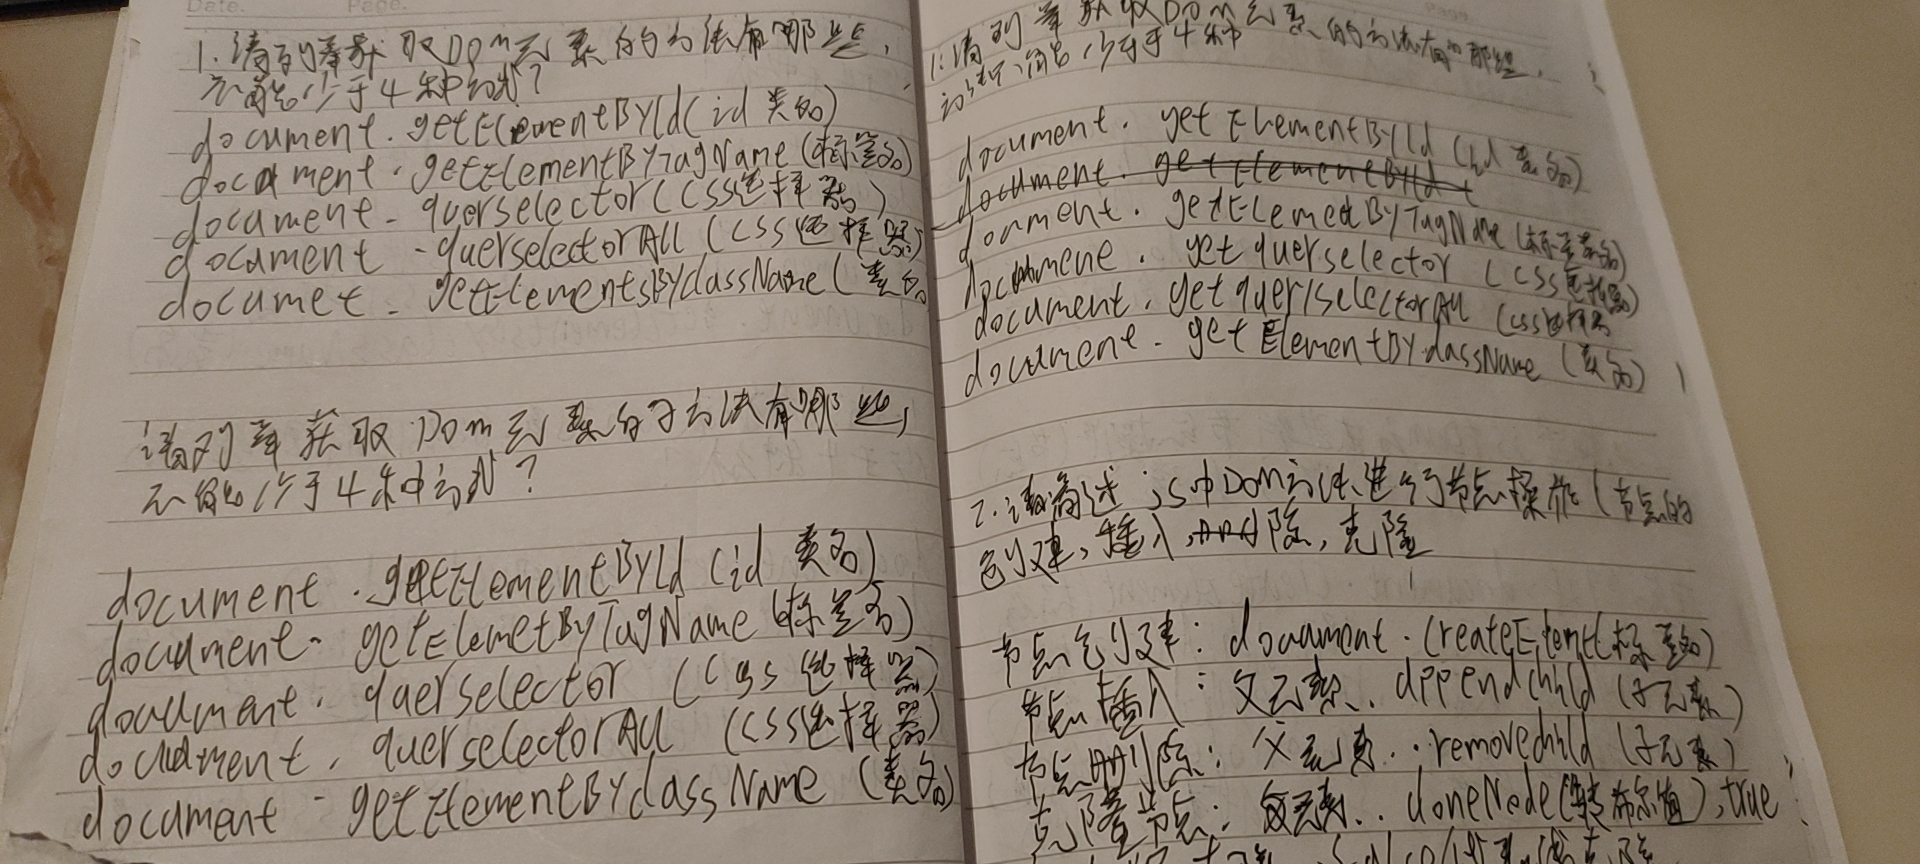 Date.
Page.
1.请列举获取DOM元素的方法有哪些,
不能少于4种方式?
document.getElementById(id类名)
document.getElementByTagName(标签名)
document.querselector(CSS选择器)
document.querselectorAll(CSS选择器)
documet.getElementsByclassName(类名
请列举获取DOM元素的方法有哪些,
不能少于4种方式?
document.getElementById(id类名)
document.getElemetByTagName(标签名)
document.querselector(Css选择器)
document.querselectorAll(CSS选择器)
document.getElementByclassName(类名)
Page
1:请列举获取DOM元素的方法有哪些,
不能少于4种
document.getElementById(id类名)
document.getElementById
document.getElemetByTagName(标签名)
documene.getquerselector(CSS选择器)
document.getquerselectorAll(css选择器
document.getElementByclassName(类名)
2.请简述js中DOM方法进行节点操作(节点的
创建,插入,删除,克隆
节点创建:document.createElemet(标签名)
节点插入:父元素.appendchild(子元素)
节点删除:父元素.removechild(子元素)
克隆节点:父元素.cloneNode(布尔值),true